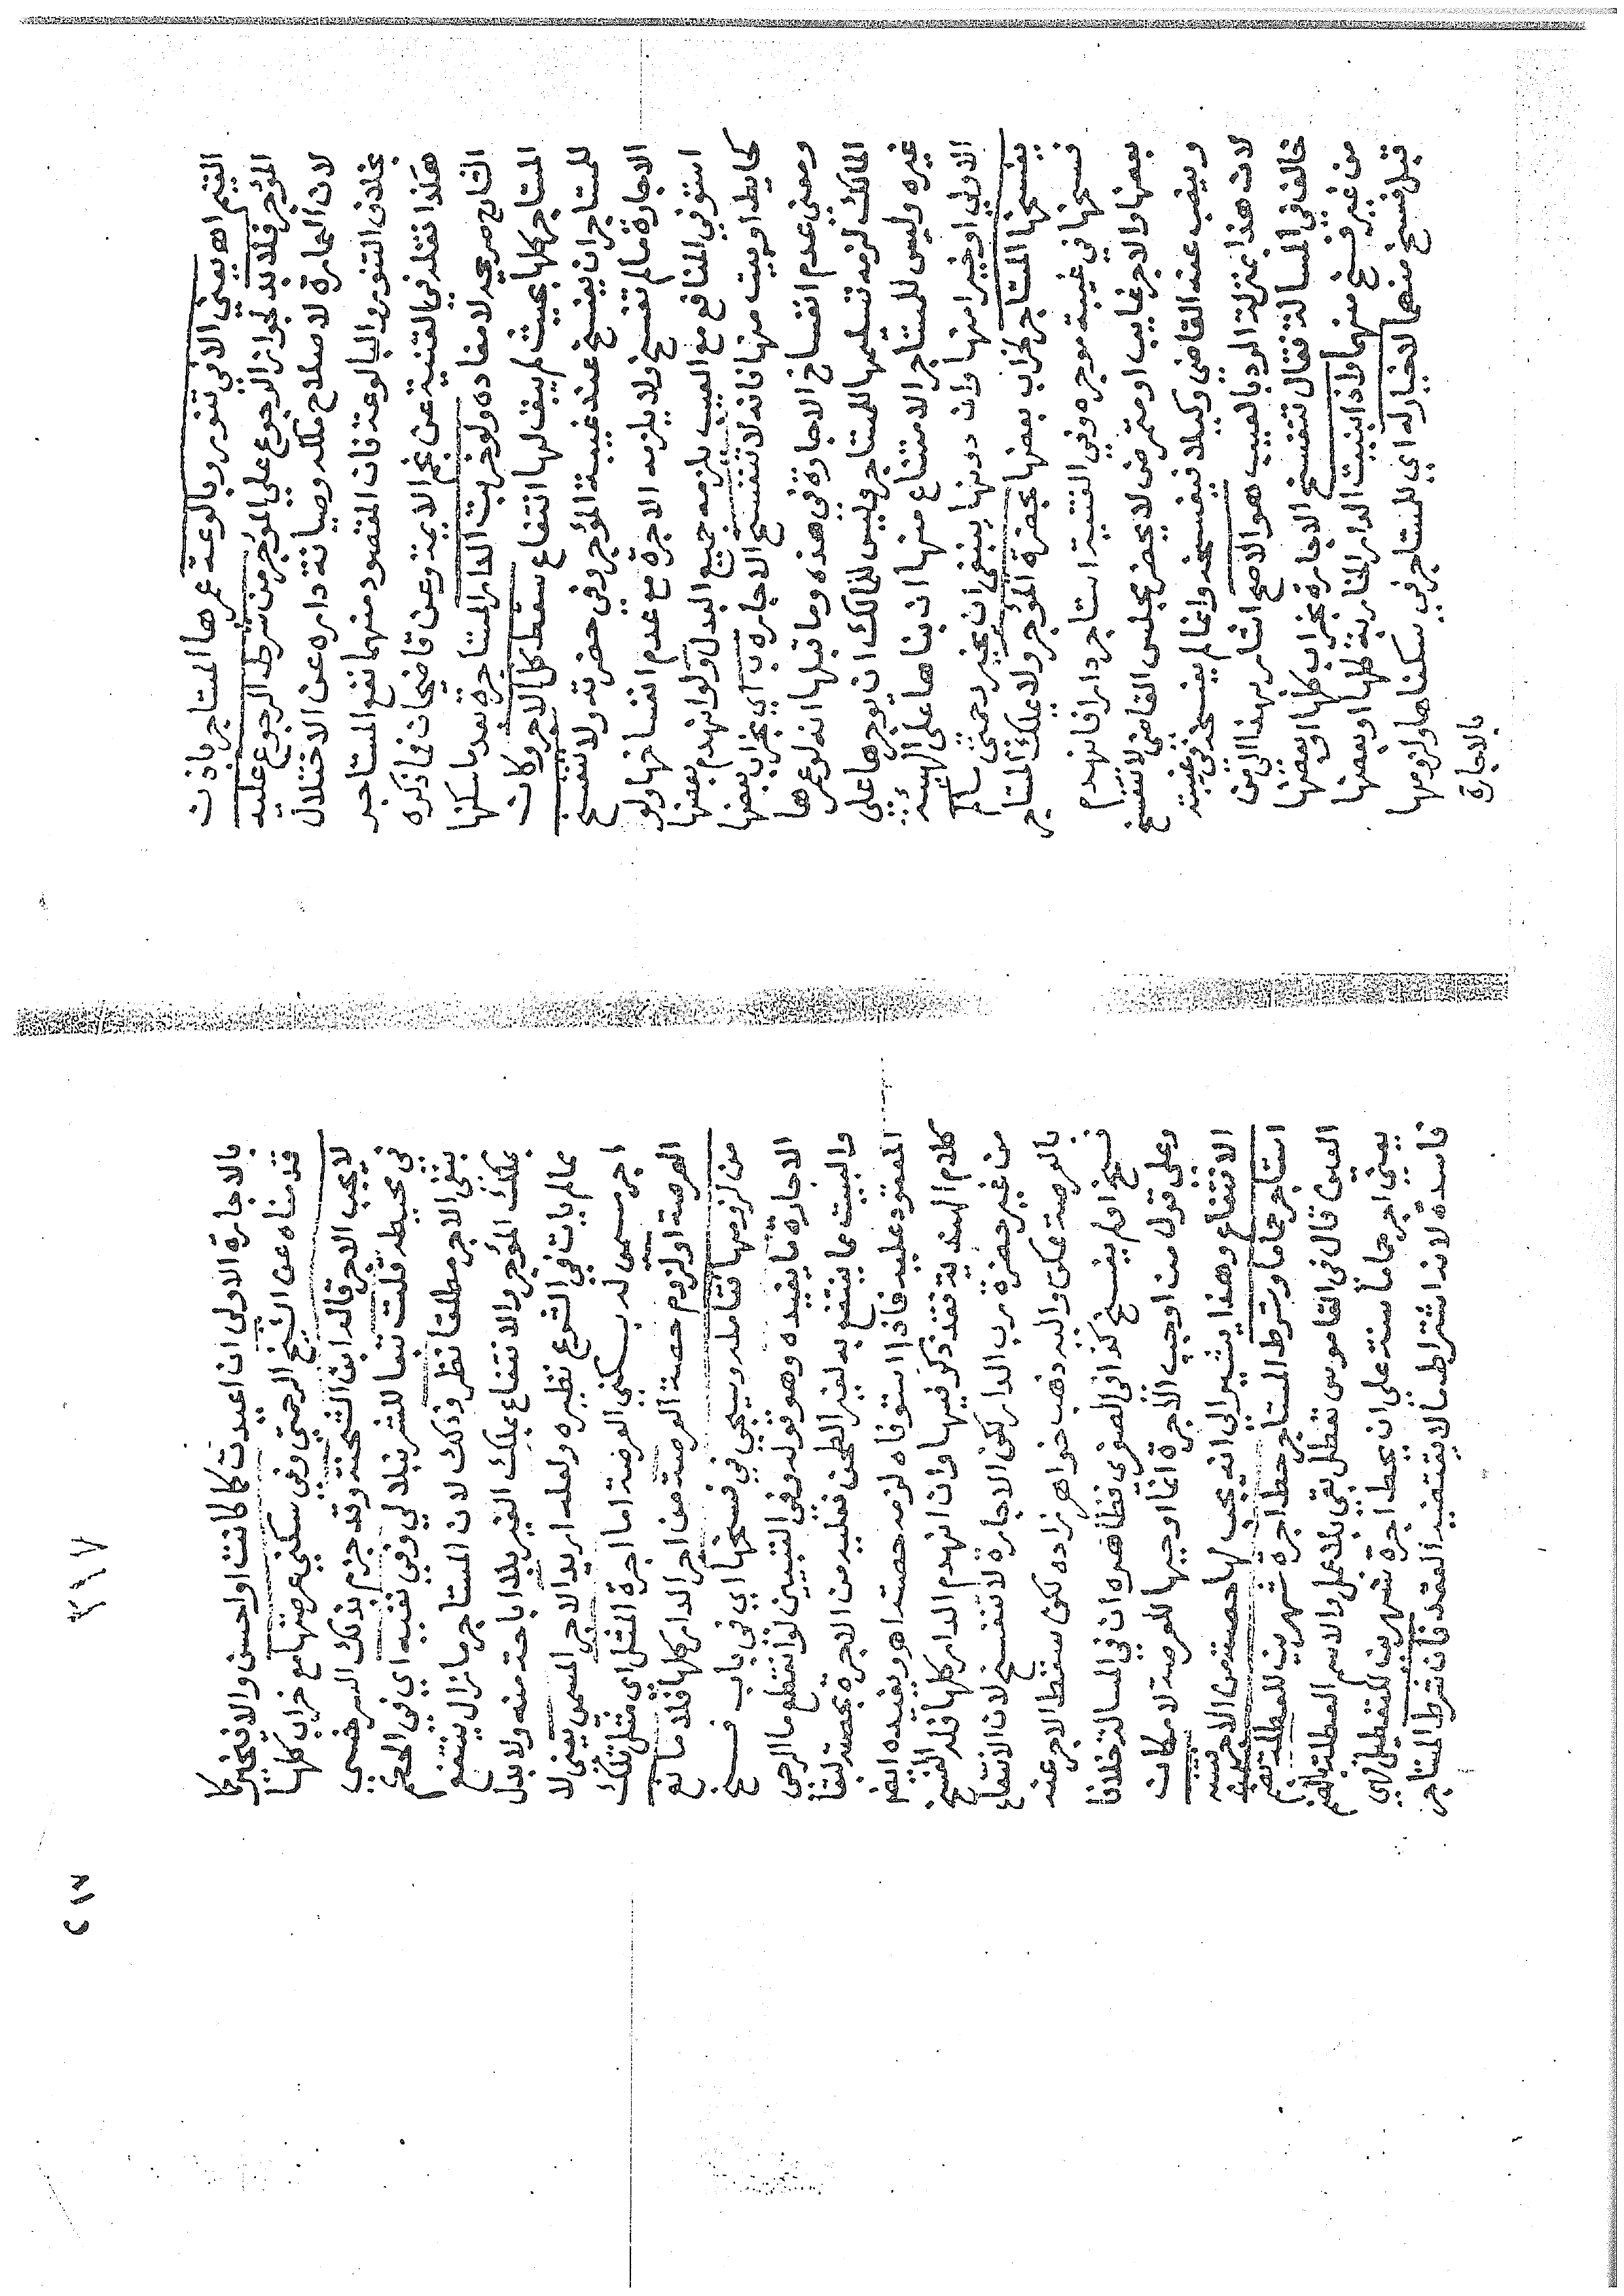 القيم اهـ يعني الا في تنور وبالوعة عمرها المستاجر باذن
المؤجر فلابد لجواز الرجوع علي المؤجر من شرط الرجوع عليه
لان العمارة لاصلاح ملكه وصيانة داره عن الاختلال
بخلاف التنور والبالوعة فان المقصود منهما نفع المستاجر
هكذا نقله في القنية عن نجم الايمة وعن قاضيخان فما ذكره
الشارح صريحه لا مفاده ولو خربت الدار المستاجرة بعد ما سكنها
المستاجر كلها بحيث لم يبق لها انتفاع سقط كل الاجر وكان
للمستاجر ان يفسخ عند غيبة المؤجر وفي حضرته ولا تنفسخ
الاجارة ما لم تفسخ ولا يلزمه الاجرة مع عدم انفساخها ولو
استوفي المنافع مع العيب يلزمه جميع البدل ولو انهدم بعضها
كحايط او بيت منها فانه لا تنفسخ الاجارة به اي بخراب بعضها
ومعني عدم انفساخ الاجارة في هذه وما قبلها انه لو عمرها
المالك لزمه تسليمها للمستاجر وليس للمالك ان يوجرها علي
غيره وليس للمستاجر الامتناع منها ان بناها علي الهيئة
الاولي او خيرا منها وان دونها ينبغي ان يخير رحمتي سالم
يفسخها المستاجر لخراب بعضها بحضرة المؤجر ولا يملك المستاجر
فسخها في غيبة موجره وفي القنية استاجر دارا فانهدم
بعضها والاجر غايب او متمرض لا يحضر مجلس القاضي لا تنفسخ
وينصب عنه القاضي وكيلا فيفسخه وانما لم يفسخه في غيبته
لان هذا بمنزلة الرد بالعيب هو الاصح اشار بهذا الي من
خالف في المسالة فقال تنفسخ الاجارة بخراب كلها او بعضها
من غير فسخ منها واذا بنيت الدار الخاربة كلها او بعضها
قبل فسخ منهما لاخيار له اي للمستاجر في سكناها ولزومها
بالاجارة
بالاجارة الاولي ان اعيدت كما كانت او احسن والا فيخير كما
قدمناه عن الشيخ الرحمتي وفي سكني عرصتها مع خراب كلها
لا يجب الاجر قاله ابن الشحنة وقد جزم بذلك السرخسي
في محيطه قلت تبعا للشرنبلالي وفي نفيه اي في الحكم
بنفي الاجر مطلقا نظر وذلك لان المستاجر ما زال ينتفع
بملك المؤجر والانتفاع بملك الغير بلا اباحة منه ولا بدل
مما لم يات في الشرع نظيره ولعله اريد الاجر المسمي يعني لا
اجر مسمي له بسكني العرصة اما اجرة المثل اي مثل تلك
العرصة او لزوم حصة العرصة من اجر الدار كلها فلا مانع
من لزومها فتامله وسيجي في فسخها اي في باب فسخ
الاجارة ما يفيده وهو قوله وفي التبيين لو انقطع ما الرحي
والبيت مما ينتفع به لغير الطحن فعليه من الاجرة بحصته لبقا
المعقود عليه فاذا استوفاه لزمه حصته اهـ ويفيده ايضا
كلام الهندية فقد ذكر فيها وان انهدم الدار كلها فله الفسخ
من غير حضرة رب الدار لكن الاجارة لا تنفسخ لان الانتفاع
بالعرصة ممكن واليه ذهب خواهر زاده لكن سقط الاجر عنه
فسخ او لم يفسخ كذا في الصغري فظاهره ان في المسالة خلافا
وعلي قول من اوجب الاجرة انما اوجبها للعرصة لامكان
الانتفاع وهذا يشير الي انه يجب لها حصته من الاجر
استاجر حماما وشرط المستاجر حط اجرة شهرين للعطلة
العين قال في القاموس تعطل بقي بلا عمل والاسم العطلة بالضم
يعني اجر حماما سنة علي ان يحط اجرة شهرين للتعطيل اي
فاسدة لانه اشتراط ما لا يقتضيه العقد فان شرط المستاجر
٢١٧
٢١٧